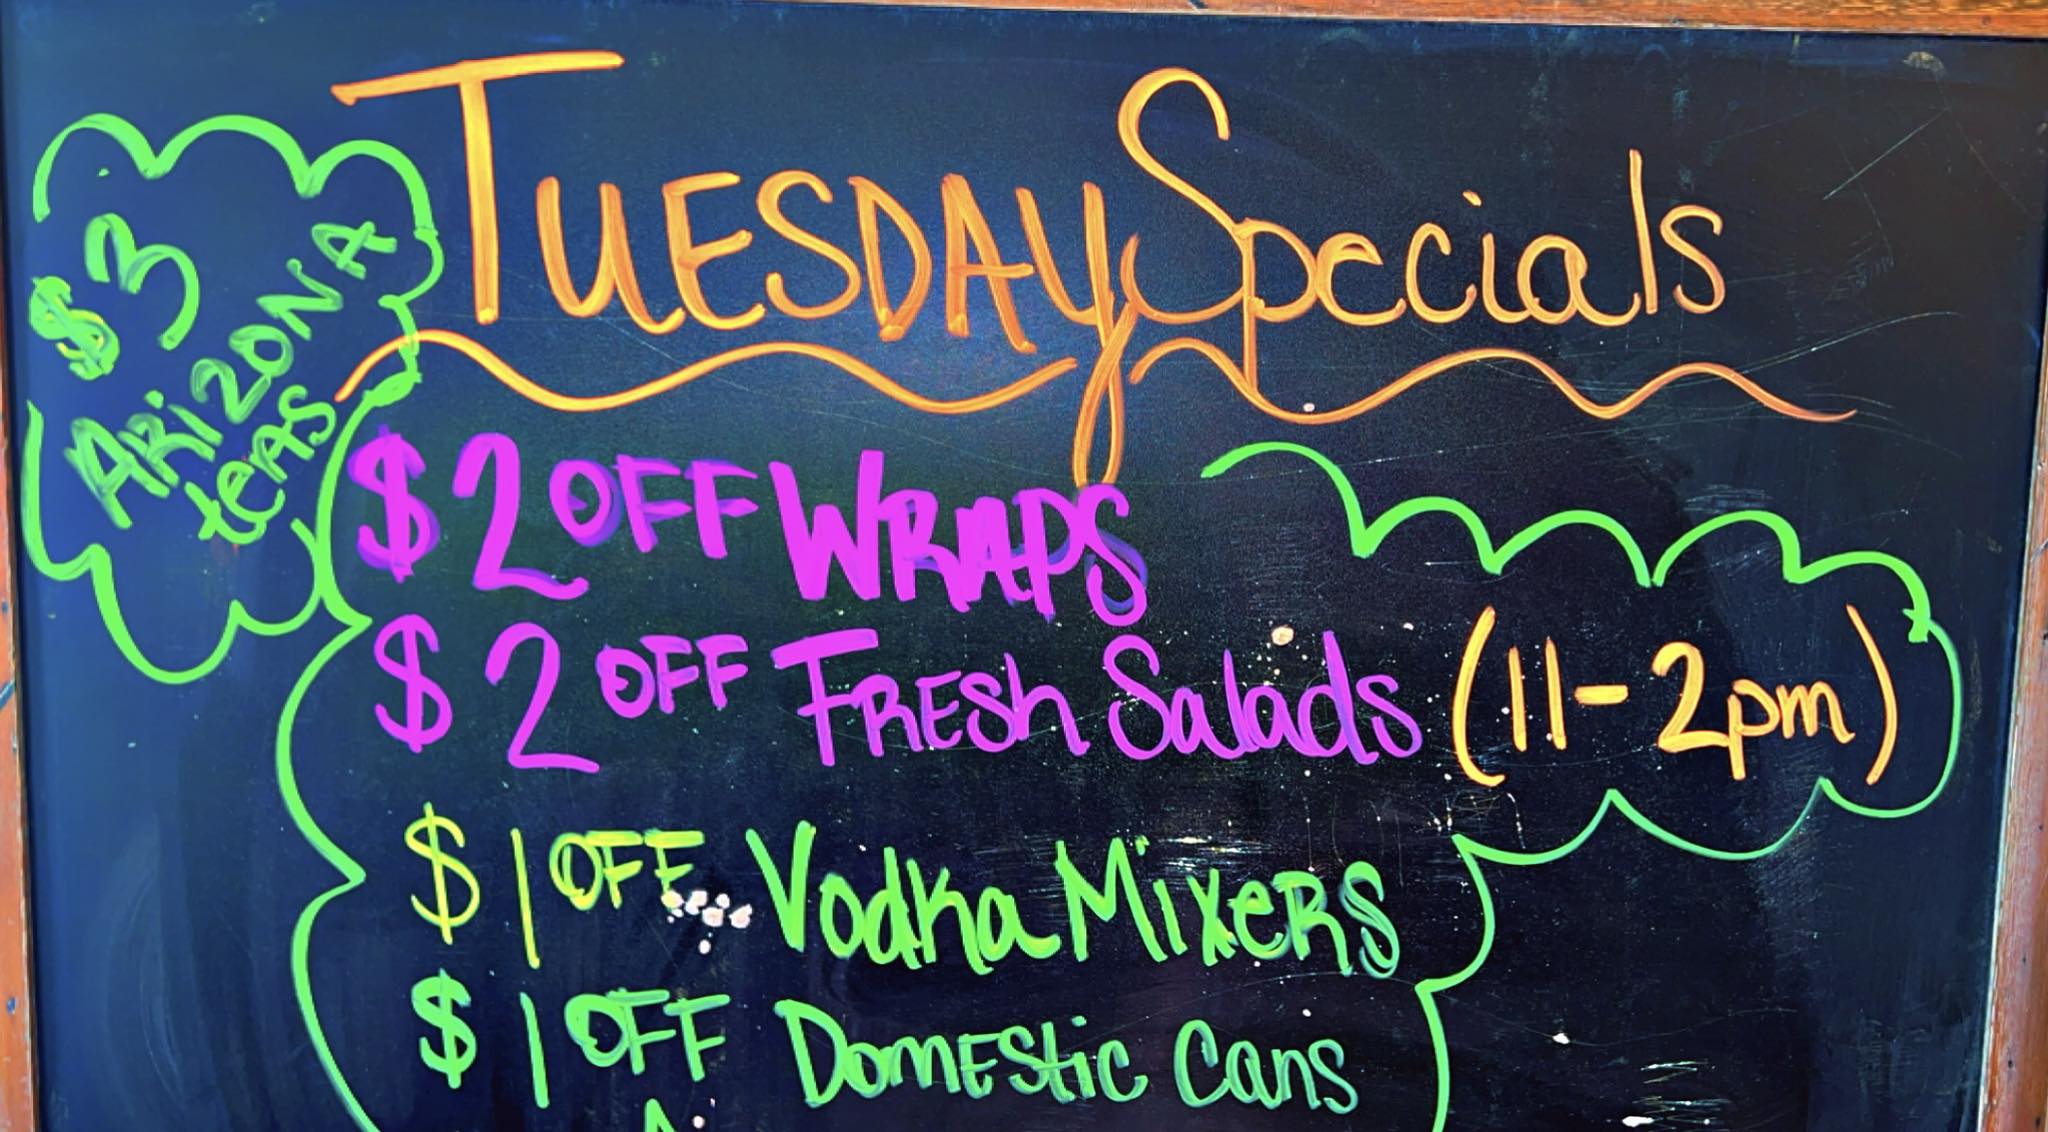 Tuesday Specials
$3
Arizona
teas
$2 OFF WRAPS
$2 OFF FRESh Salads (11-2pm)
$1 OFF Vodka MixeRS
$1 OFF DomEStic Cans